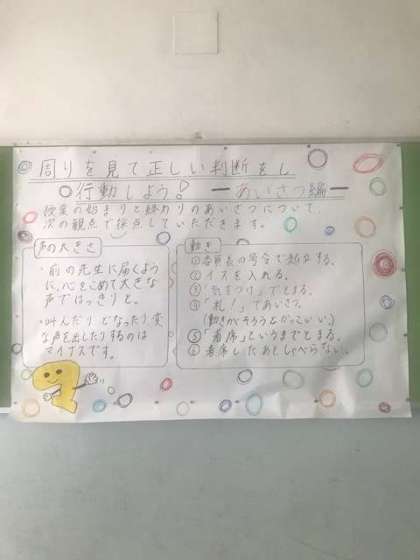 周りを見て正しい判断をし
行動しよう! ーあいさつ編ー
授業の始まりと終わりのあいさつについて、
次の観点で採点していただきます。
声の大きさ
・前の先生に届くよう
に、心をこめて大きな
声ではっきりと。
・叫んだり どなったり 変
な声を出したりするのは
マイナスです。
動き
①の号令で起立する。
②イスを入れる。
③「気をつけ」でとまる。
④「礼!」であいさつ。
(動きがそろうとかっこいい。)
⑤「着席」というまでとまる。
⑥着席したあとしゃべらない。